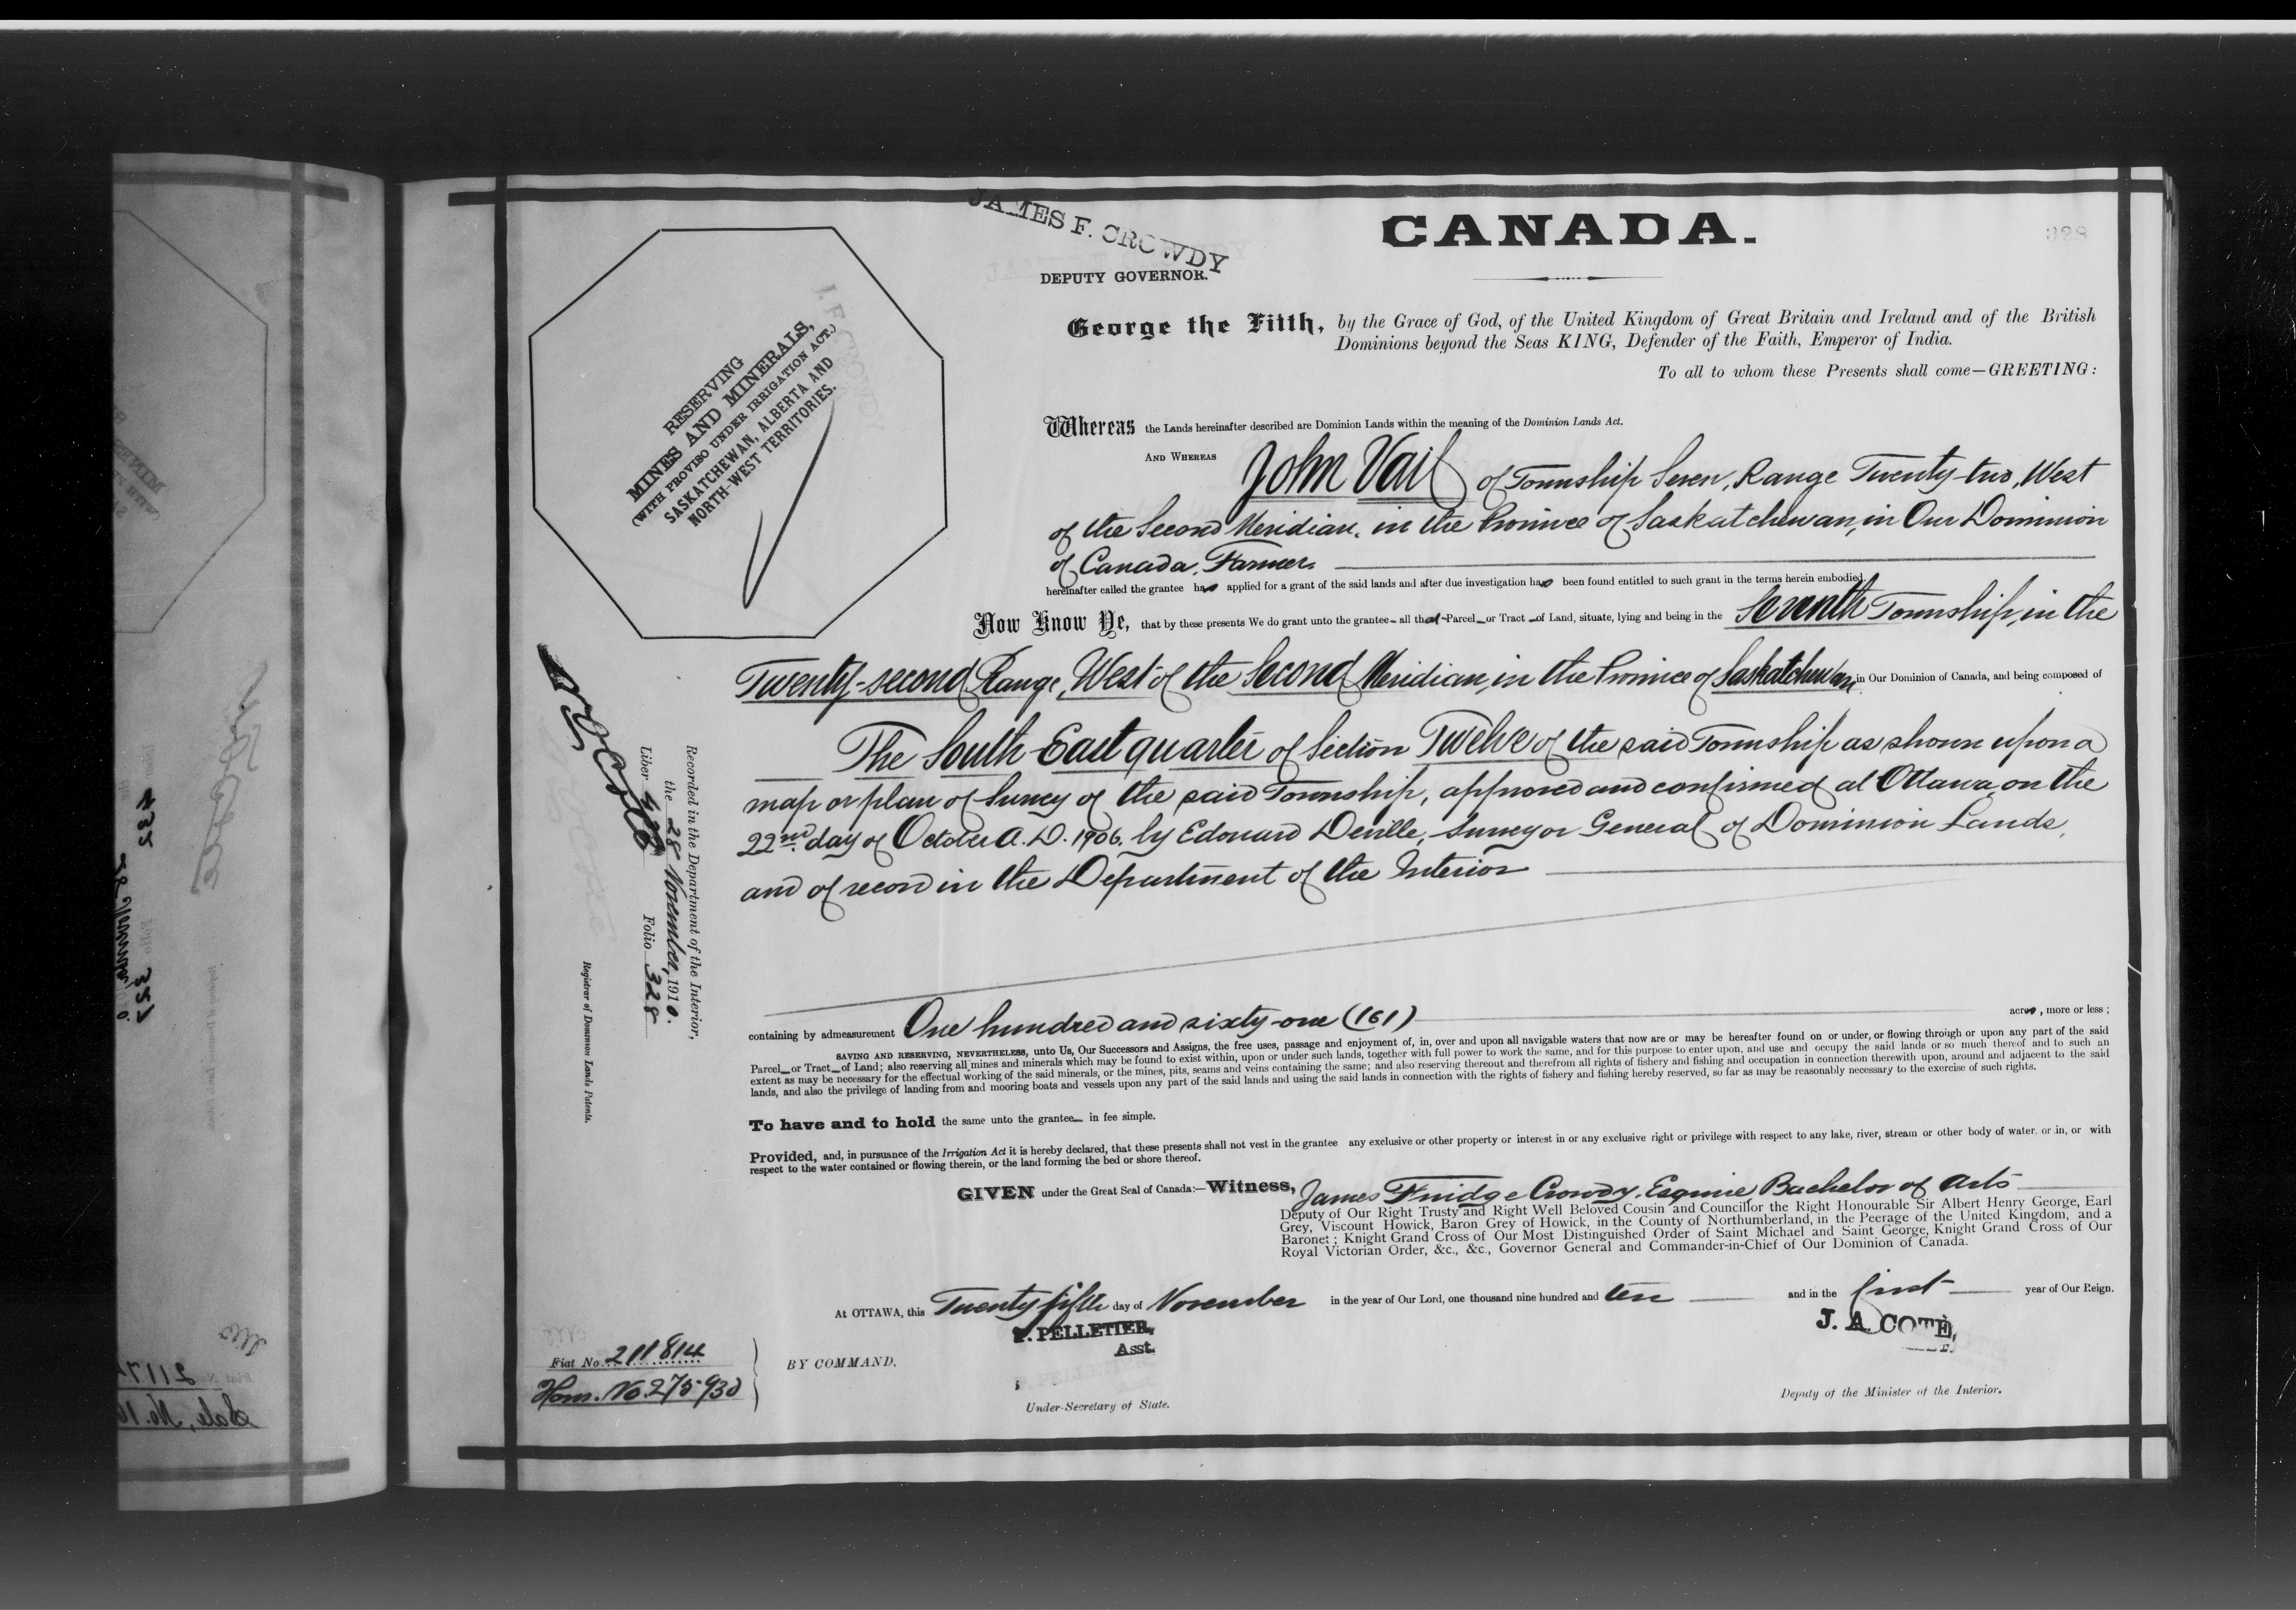 JAMES F. CROWDY
DEPUTY GOVERNOR.
CANADA.
328
George the Fifth, by the Grace of God, of the United Kingdom of Great Britain and Ireland and of the British
Dominions beyond the Seas KING, Defender of the Faith, Emperor of India.
To all to whom these Presents shall come—GREETING:
RESERVING
MINES AND MINERALS,
(WITH PROVISO UNDER IRRIGATION ACT.)
SASKATCHEWAN, ALBERTA AND
NORTH-WEST TERRITORIES.
Whereas the Lands hereinafter described are Dominion Lands within the meaning of the Dominion Lands Act.
AND WHEREAS John Vail of Township Seven, Range Twenty-two, West
of the Second Meridian, in the Province of Saskatchewan, in Our Dominion
of Canada, Farmer,
hereinafter called the grantee has applied for a grant of the said lands and after due investigation has been found entitled to such grant in the terms herein embodied.
Now Know Ye, that by these presents We do grant unto the grantee all that Parcel or Tract of Land, situate, lying and being in the Seventh Township, in the
Twenty-second Range, West of the Second Meridian, in the Province of Saskatchewan, in Our Dominion of Canada, and being composed of
The South East quarter of Section Twelve of the said Township as shown upon a
map or plan of Survey of the said Township, approved and confirmed at Ottawa, on the
22nd day of October A.D. 1906, by Edouard Deville, Surveyor General of Dominion Lands,
and of record in the Department of the Interior
containing by admeasurement One hundred and sixty-one (161) acres, more or less;
SAVING AND RESERVING, NEVERTHELESS, unto Us, Our Successors and Assigns, the free uses, passage and enjoyment of, in, over and upon all navigable waters that now are or may be hereafter found on or under, or flowing through or upon any part of the said
Parcel or Tract of Land; also reserving all mines and minerals which may be found to exist within, upon or under such lands, together with full power to work the same, and for this purpose to enter upon, and use and occupy the said lands or so much thereof and to such an
extent as may be necessary for the effectual working of the said minerals, or the mines, pits, seams and veins containing the same; and also reserving thereout and therefrom all rights of fishery and fishing and occupation in connection therewith upon, around and adjacent to the said
lands, and also the privilege of landing from and mooring boats and vessels upon any part of the said lands and using the said lands in connection with the rights of fishery and fishing hereby reserved, so far as may be reasonably necessary to the exercise of such rights.
To have and to hold the same unto the grantee in fee simple.
Provided, and, in pursuance of the Irrigation Act it is hereby declared, that these presents shall not vest in the grantee any exclusive or other property or interest in or any exclusive right or privilege with respect to any lake, river, stream or other body of water, or in, or with
respect to the water contained or flowing therein, or the land forming the bed or shore thereof.
GIVEN under the Great Seal of Canada:—Witness, James Fridge Crowdy, Esquire, Bachelor of Arts
Deputy of Our Right Trusty and Right Well Beloved Cousin and Councillor the Right Honourable Sir Albert Henry George, Earl
Grey, Viscount Howick, Baron Grey of Howick, in the County of Northumberland, in the Peerage of the United Kingdom, and a
Baronet; Knight Grand Cross of Our Most Distinguished Order of Saint Michael and Saint George, Knight Grand Cross of Our
Royal Victorian Order, &c., &c., Governor General and Commander-in-Chief of Our Dominion of Canada.
At OTTAWA, this Twenty fifth day of November in the year of Our Lord, one thousand nine hundred and ten and in the first year of Our Reign.
P. PELLETIER,
Asst.
J. A. COTÉ,
BY COMMAND,
Under-Secretary of State.
Deputy of the Minister of the Interior.
Fiat No. 211814
Hom. No. 275930
Recorded in the Department of the Interior,
the 28 November, 1910.
Liber Folio 328
Registrar of Dominion Lands Patents.